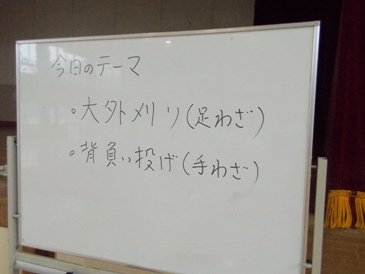 今日のテーマ
。大外刈り(足わざ)
。背負い投げ(手わざ)